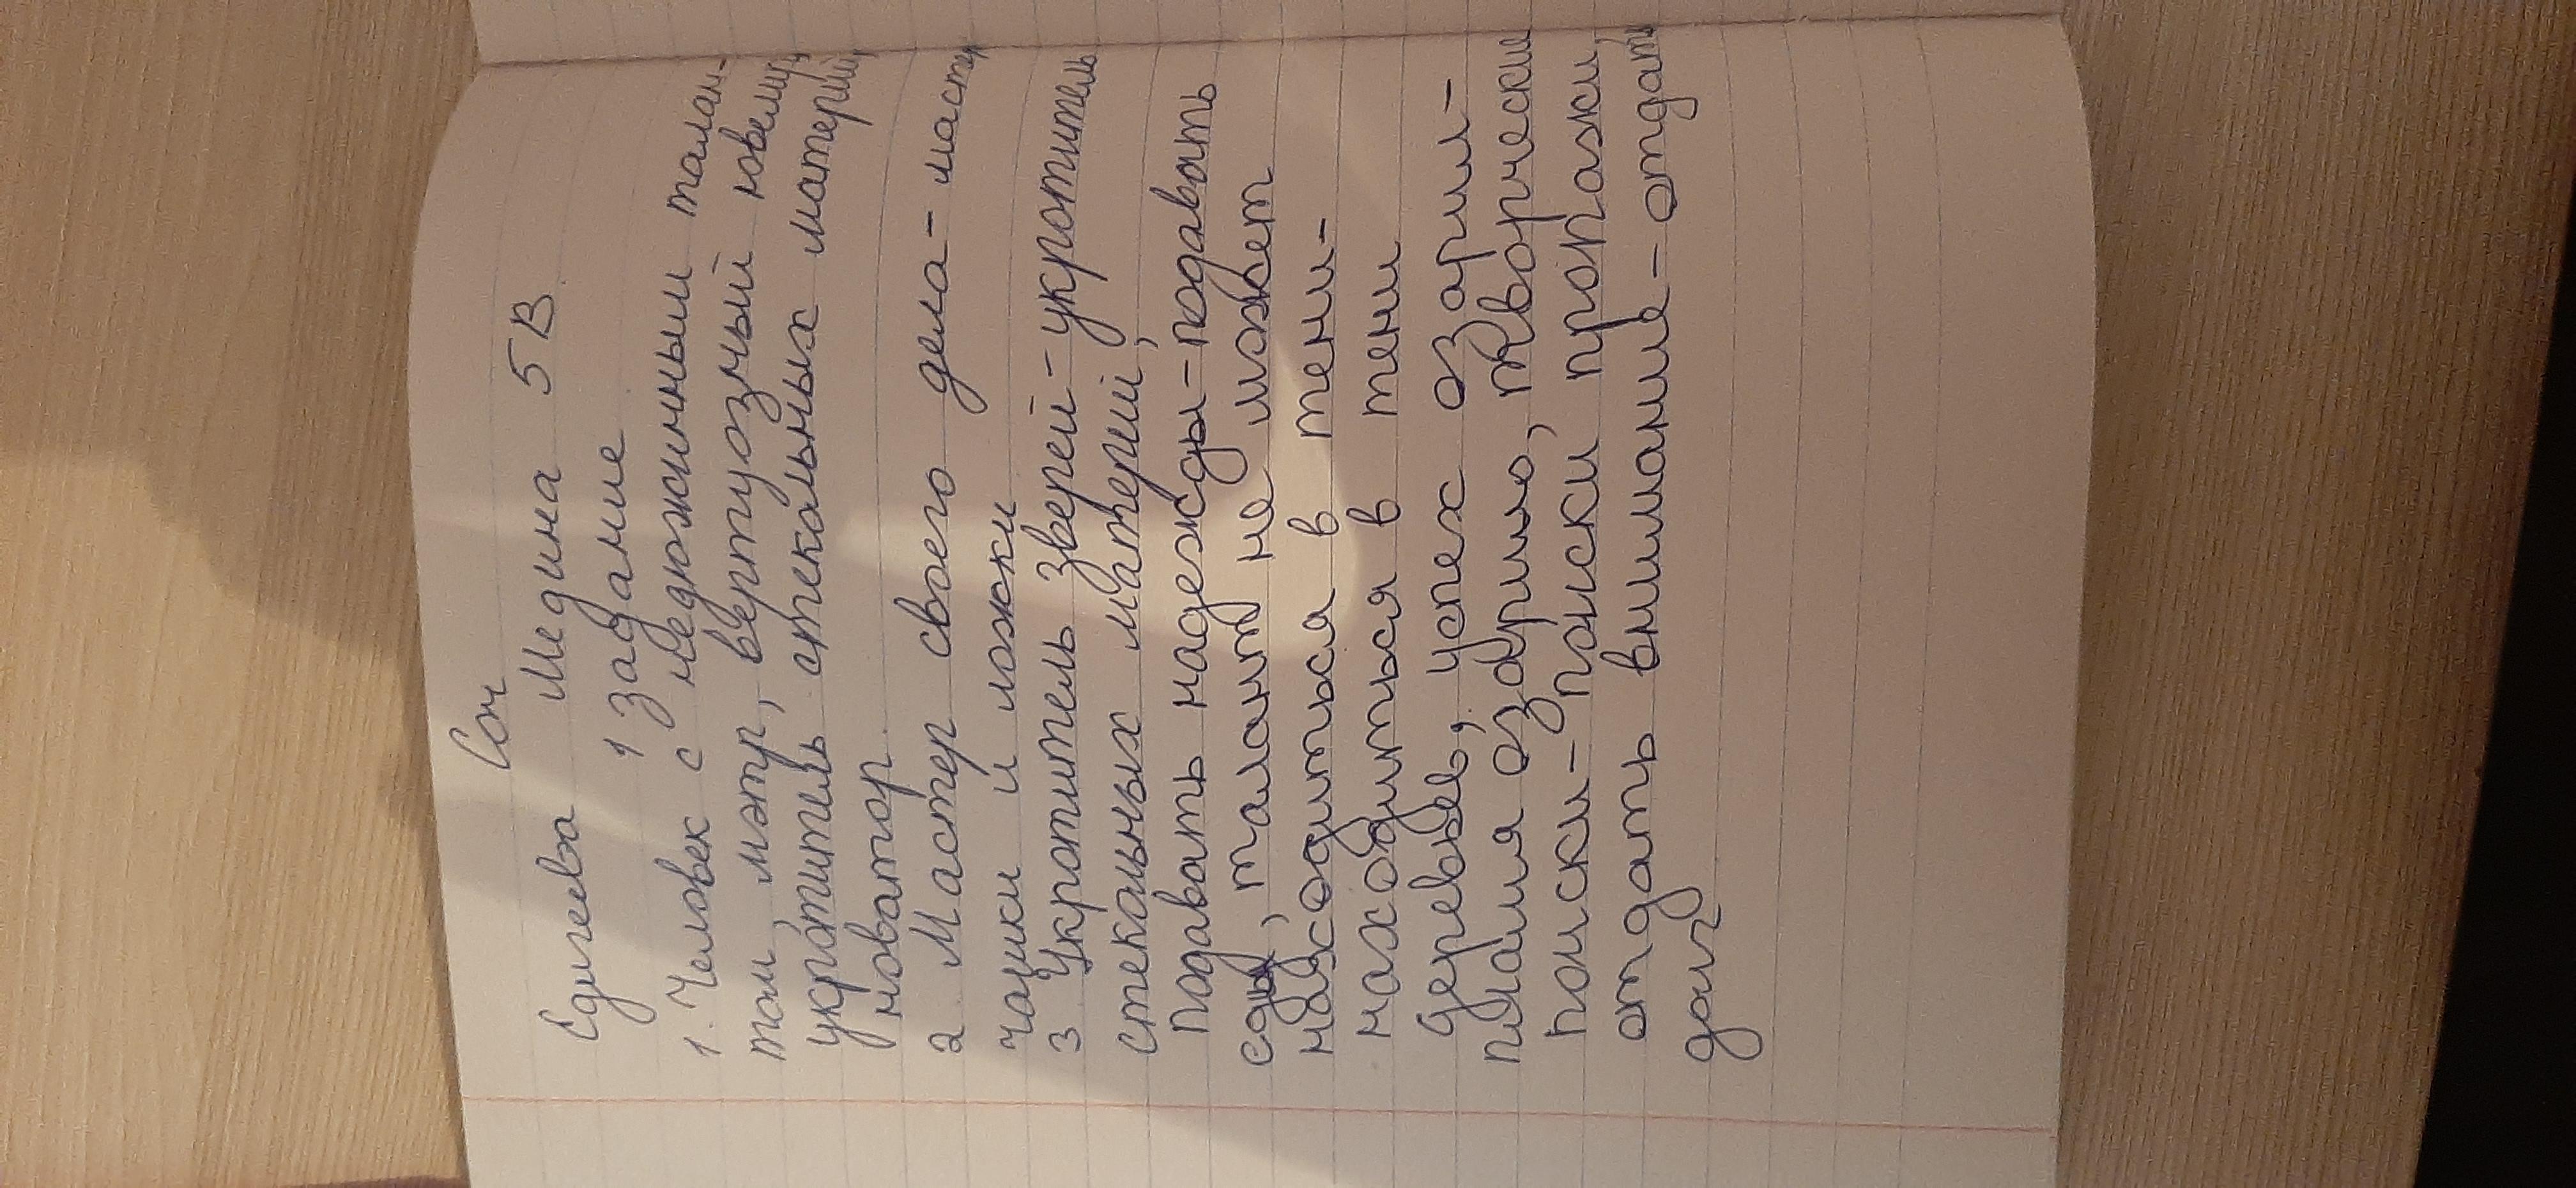 Соч
Едигеева Медина 5 В
1 задание
1. Человек с недюжинным талан-
том, мэтр, вертуозный ювелир,
укротитель стекольных материй,
новатор
2 Мастер своего дела - масте
чашки и ложки
3 Укротитель зверей - укротитель
стекольных материй,
подавать надежды - подавать
сды, талант не может
находиться в тени -
находиться в тени
деревьев, успех озарил -
пламя озарило, творческие
поиски - поиски пропажи,
отдать внимание - отдать
долг